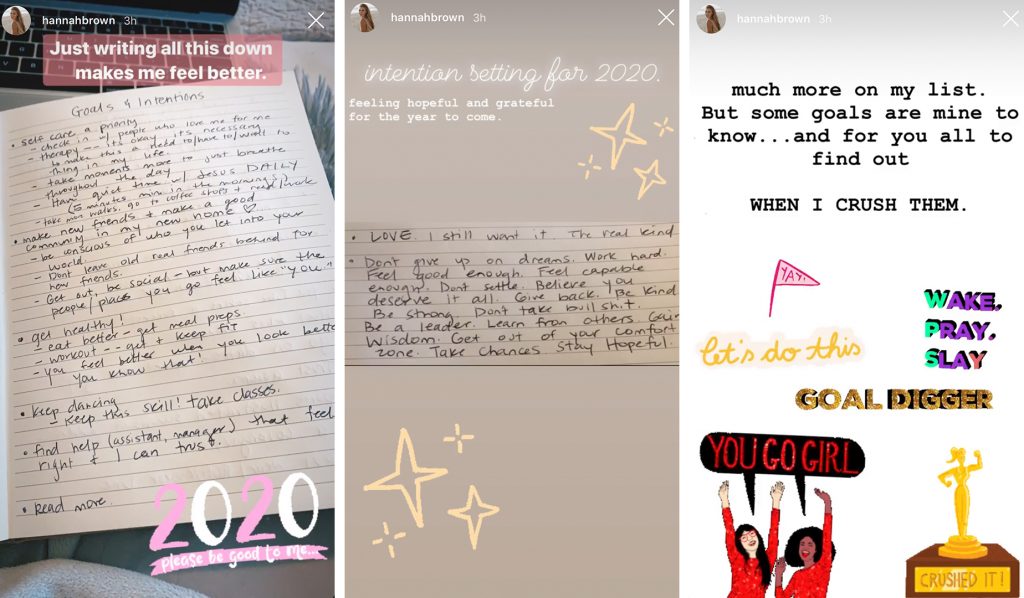 hannahbrown 3h
Just writing all this down
makes me feel better.
Goals & Intentions
• self care a priority
- check in w/ people who love me for me
- therapy -- its okay, its necessary
to make this a need to/have to/want to
thing in my life.
- take moments more to just breathe
throughout the day
- Have quiet time w/ Jesus DAILY
(5 minutes min in the morning!)
- take more walks, go to coffee shops & read/work
• make new friends & make a good
community in my new home ♡
- be conscious of who you let into your
world.
- Dont leave old real friends behind for
new friends.
- Get out, be social - but make sure the
people/places you go feel like "you"
• get healthy!
- eat better - get meal preps
- workout - get & keep fit
- you feel better when you look better
you know that!
• keep dancing
- keep this skill! take classes.
• find help (assistant, manager) that feel
right & I can trust.
• Read more.
2020
please be good to me...
hannahbrown 3h
intention setting for 2020.
feeling hopeful and grateful
for the year to come.
• LOVE. I still want it. The real kind
• Dont give up on dreams. Work hard.
Feel good enough. Feel capable
enough. Dont settle. Believe you
deserve it all. Give back. Be kind
Be strong. Dont take bullsh*t.
Be a leader. Learn from others Gain
Wisdom. Get out of your comfort
zone. Take Chances Stay Hopeful.
hannahbrown 3h
much more on my list.
But some goals are mine to
know...and for you all to
find out
WHEN I CRUSH THEM.
YAY!
let's do this
WAKE,
PRAY,
SLAY
GOAL DIGGER
YOU GO GIRL
CRUSHED IT!